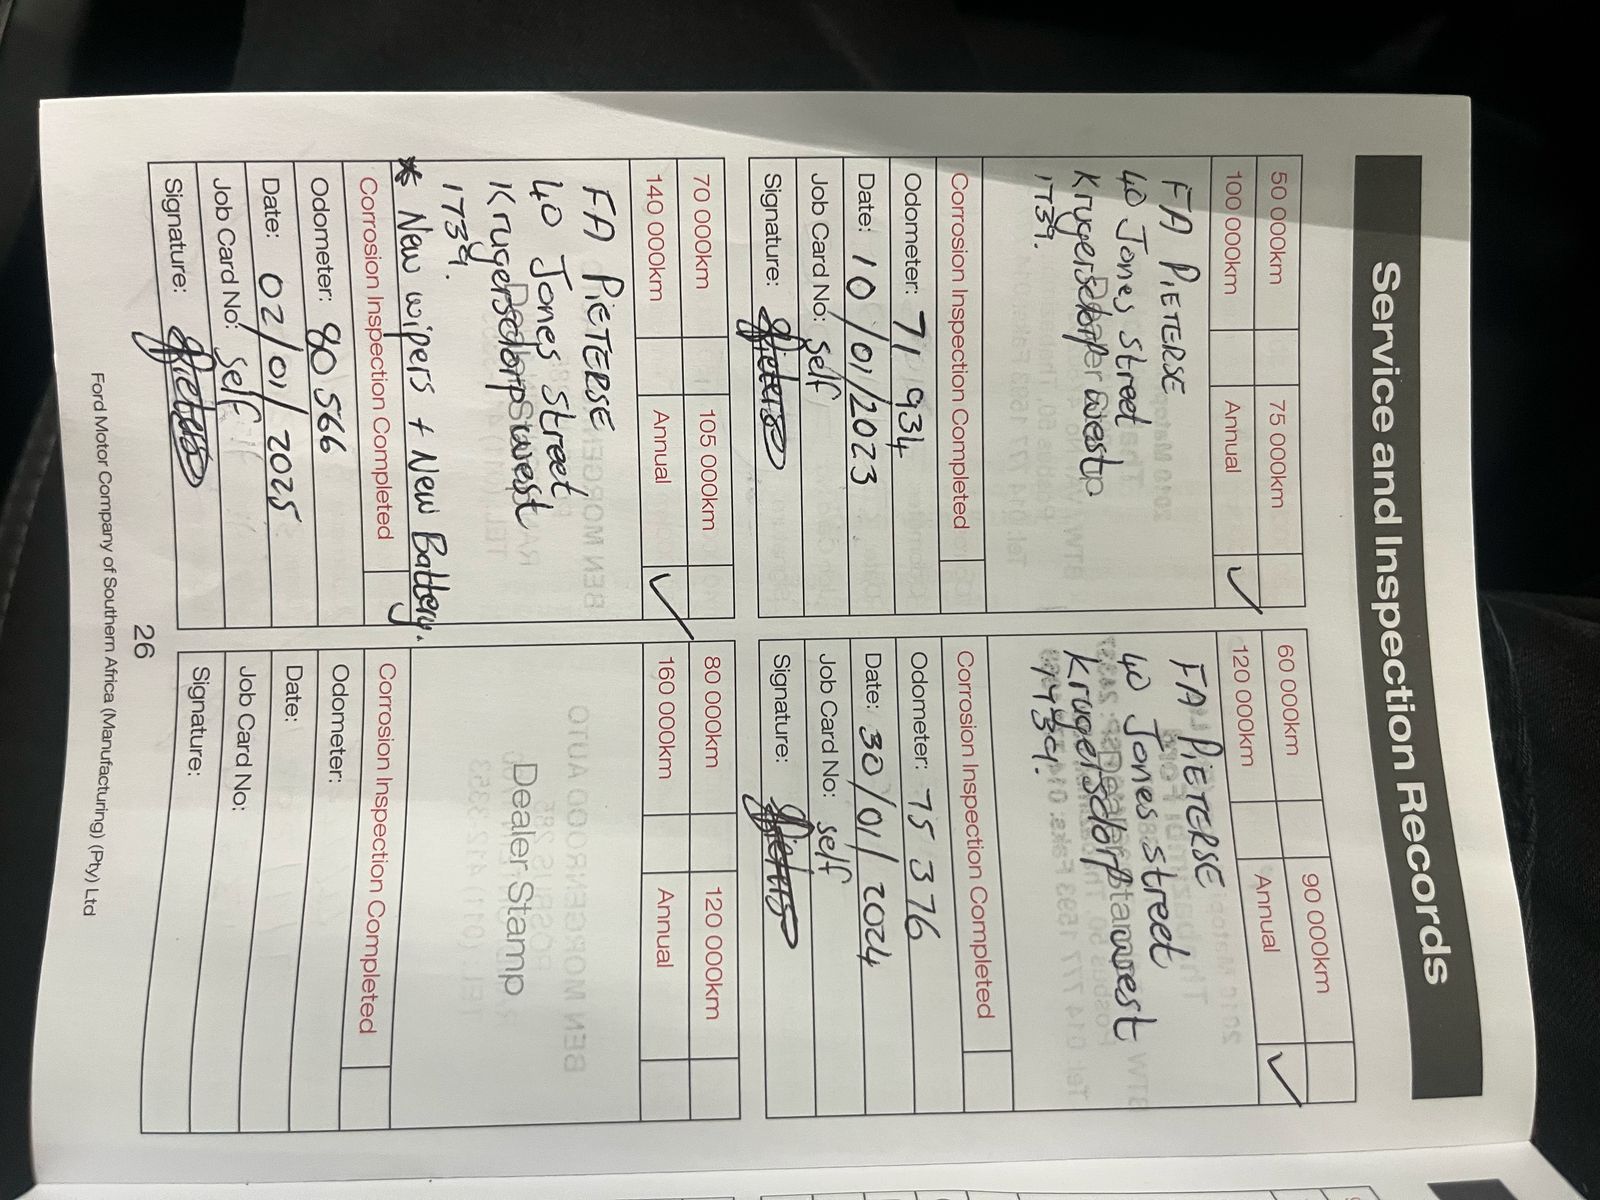 Service and Inspection Records
50 000km
75 000km
100 000km
Annual ✓
FA PIETERSE
40 Jones street
Krugersdorp west
1739.
Corrosion Inspection Completed
Odometer: 71 934
Date: 10/01/2023
Job Card No: self
Signature: Pieterse
60 000km
90 000km
120 000km
Annual ✓
FA PIETERSE
40 Jones street
Krugersdorp west
1739.
Corrosion Inspection Completed
Odometer: 75 376
Date: 30/01/2024
Job Card No: self
Signature: Pieterse
70 000km
105 000km
140 000km
Annual ✓
FA PIETERSE
40 Jones street
Krugersdorp west
1739.
* New wipers + New Battery.
Corrosion Inspection Completed
Odometer: 80 566
Date: 02/01/2025
Job Card No: self
Signature:
80 000km
120 000km
160 000km
Annual
Dealer Stamp
Corrosion Inspection Completed
Odometer:
Date:
Job Card No:
Signature:
26
Ford Motor Company of Southern Africa (Manufacturing) (Pty) Ltd